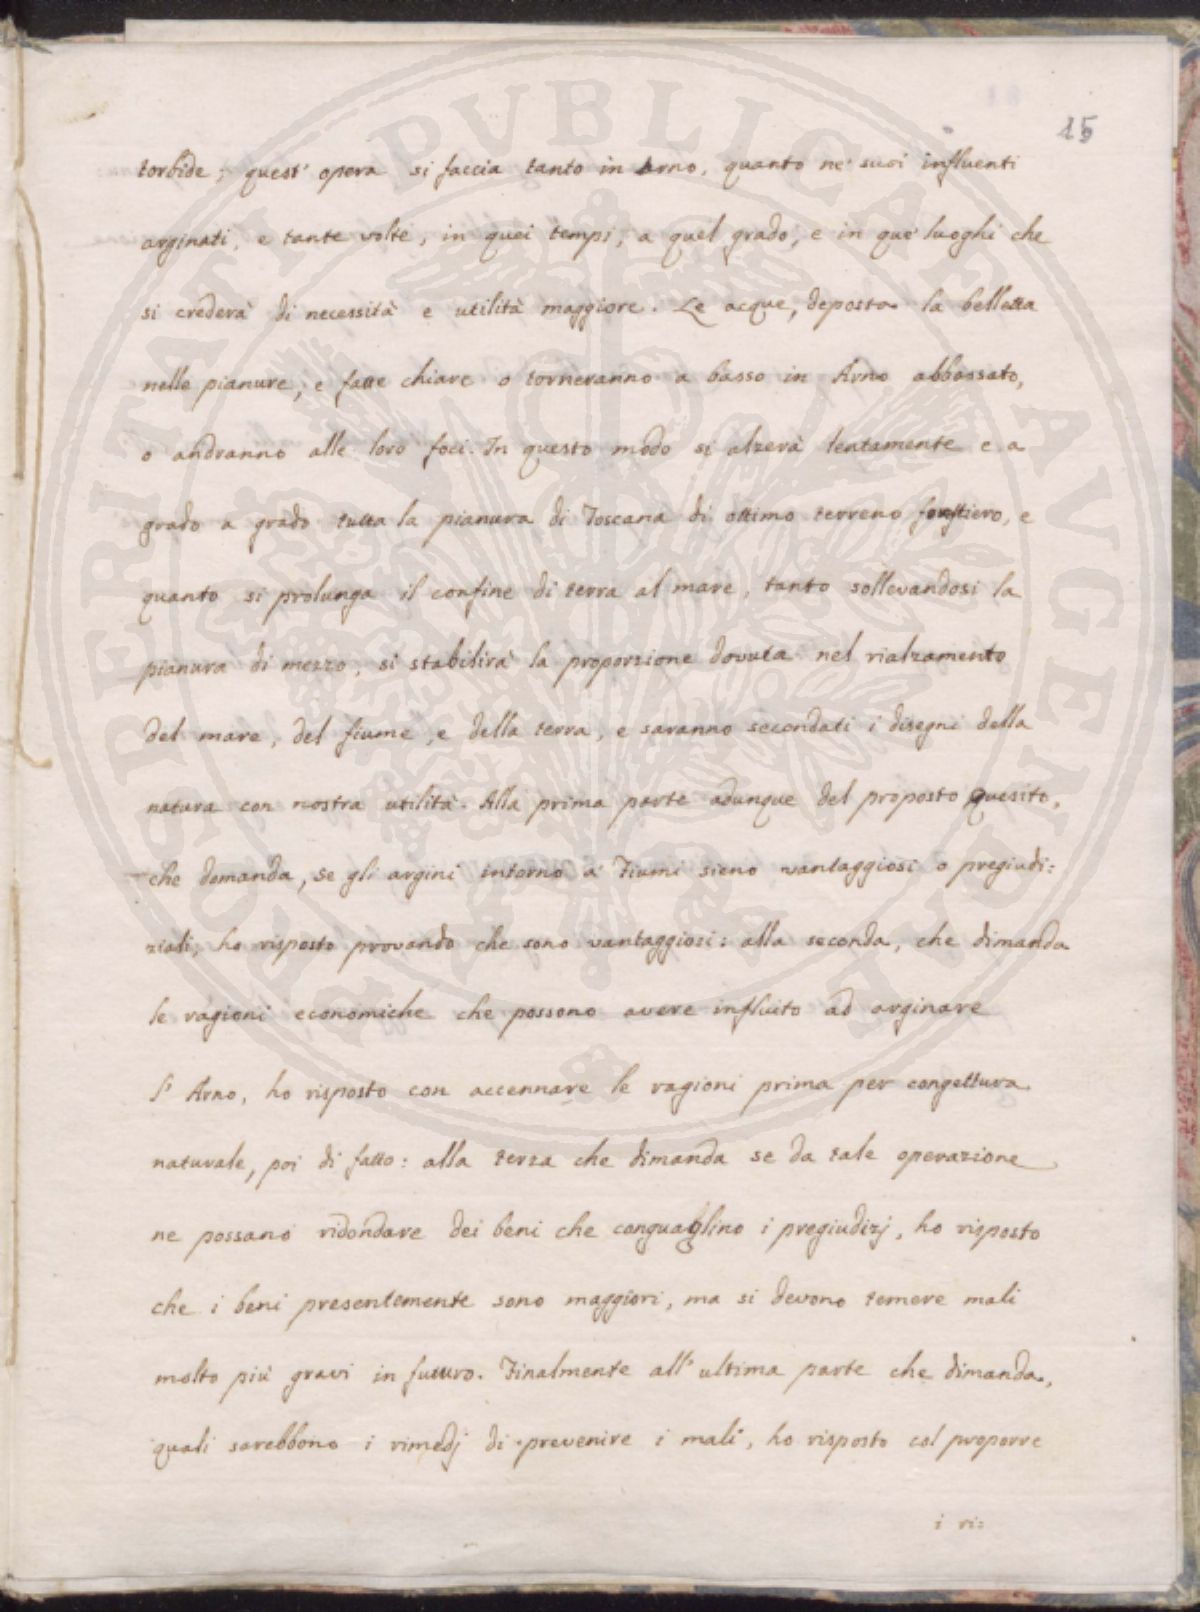 15
torbide; quest' opera si faccia tanto in Arno, quanto ne' suoi influenti
arginati, e tante volte, in quei tempi, a quel grado, e in que' luoghi che
si crederà di necessità e utilità maggiore. Le acque, deposta la belletta
nelle pianure, e fatte chiare o torneranno a basso in Arno abbassato,
o andranno alle loro foci. In questo modo si alzerà lentamente e a
grado a grado tutta la pianura di Toscana di ottimo terreno forestiero, e
quanto si prolunga il confine di terra al mare, tanto sollevandosi la
pianura di mezzo, si stabilirà la proporzione dovuta nel rialzamento
del mare, del fiume, e della terra, e saranno secondati i disegni della
natura con nostra utilità. Alla prima parte adunque del proposto quesito,
che domanda, se gli argini intorno a' Fiumi sieno vantaggiosi o pregiudi:
ziali, ho risposto provando che sono vantaggiosi: alla seconda, che dimanda
le ragioni economiche che possono avere influito ad arginare
l' Arno, ho risposto con accennare le ragioni prima per congettura
naturale, poi di fatto: alla terza che dimanda se da tale operazione
ne possano ridondare dei beni che conguaglino i pregiudizj, ho risposto
che i beni presentemente sono maggiori, ma si devono temere mali
molto più gravi in futuro. Finalmente all' ultima parte che dimanda,
quali sarebbono i rimedj di prevenire i mali, ho risposto col proporre
i ri:
PROSPERITATI PVBLICAE AVGENDAE